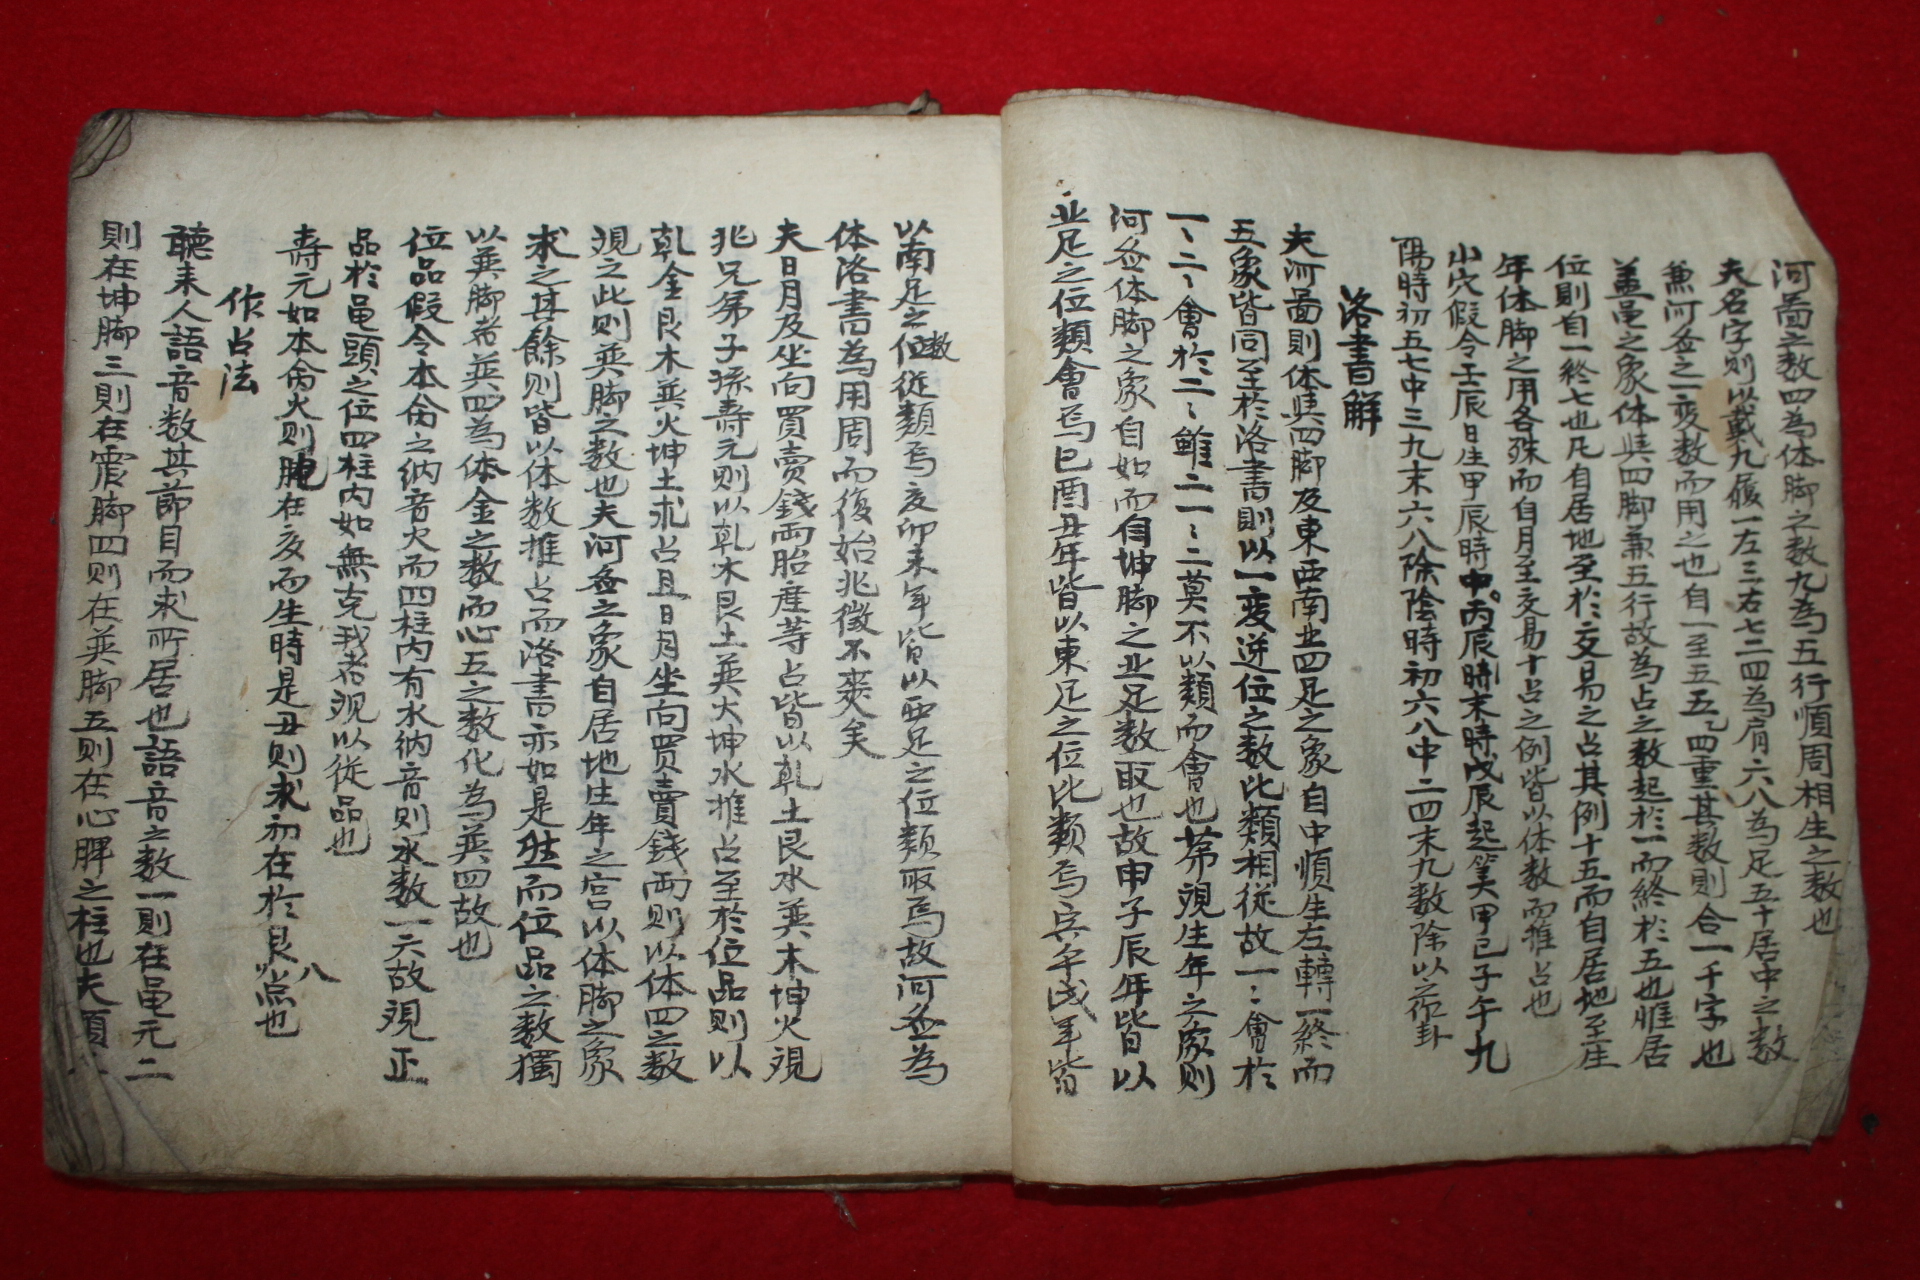 河啚之数四為体脚之数九為五行順周相生之数也
夫名字則以戴九履一左三右七二四為肩六八為足五十居中之数
兼河盁之一変数而用之也自一至五五乙四重其数則合一千字也
盖黽之象体與四脚兼五行故為占之数起於一而終於五也惟居
位則自一終七也凡自居地至於交易之占其例十五而自居地至生
年体脚之用各殊而自月至交易十占之例皆以体数而推占也
小穴假令壬辰日生甲辰時中丙辰時末時戊辰起筭甲己子午九
陽時初五七中三九末六八除陰時初六八中二四末九数除以之作卦
洛書解
夫河啚則体與四脚及東西南北四足之象自中順生左轉一終而
五象皆同至於洛書則以一変逆位之数比類相從故一〻會於
一〻二〻會於二〻雖二一〻二莫不以類而會也苐視生年之象則
河盁体脚之象自如而自坤脚之北足数取也故申子辰年皆以
北足之位類會焉巳酉丑年皆以東足之位比類焉寅午戌年皆
以南足之位数從類焉亥卯未年皆以西足之位類取焉故河盁為
体洛書為用周而復始兆徵不爽矣
夫日月及坐向買賣錢両胎産等占皆以乹土艮水巽木坤火視
兆兄弟子孫壽元則以乹水艮土巽火坤水推占至於位品則以
乹金艮木巽火坤土求占且日月坐向買賣錢両則以体四之数
視之此則巽脚之数也夫河盁之象自居地生年之宮以体脚之象
求之其餘則皆以体数推占而洛書亦如是然而位品之数獨
以巽脚者巽四為体金之数而心五之数化為巽四故也
位品假令本命之納音火而四柱内有水納音則水数一六故視正
品於黽頭之位四柱内如無克我者視以從品也
壽元如本命火則胞在亥而生時是丑則求初在於艮八点也
作占法
聽来人語音数其節目而求所居也語音之数一則在黽元二
則在坤脚三則在震脚四則在巽脚五則在心脾之柱也夫頭